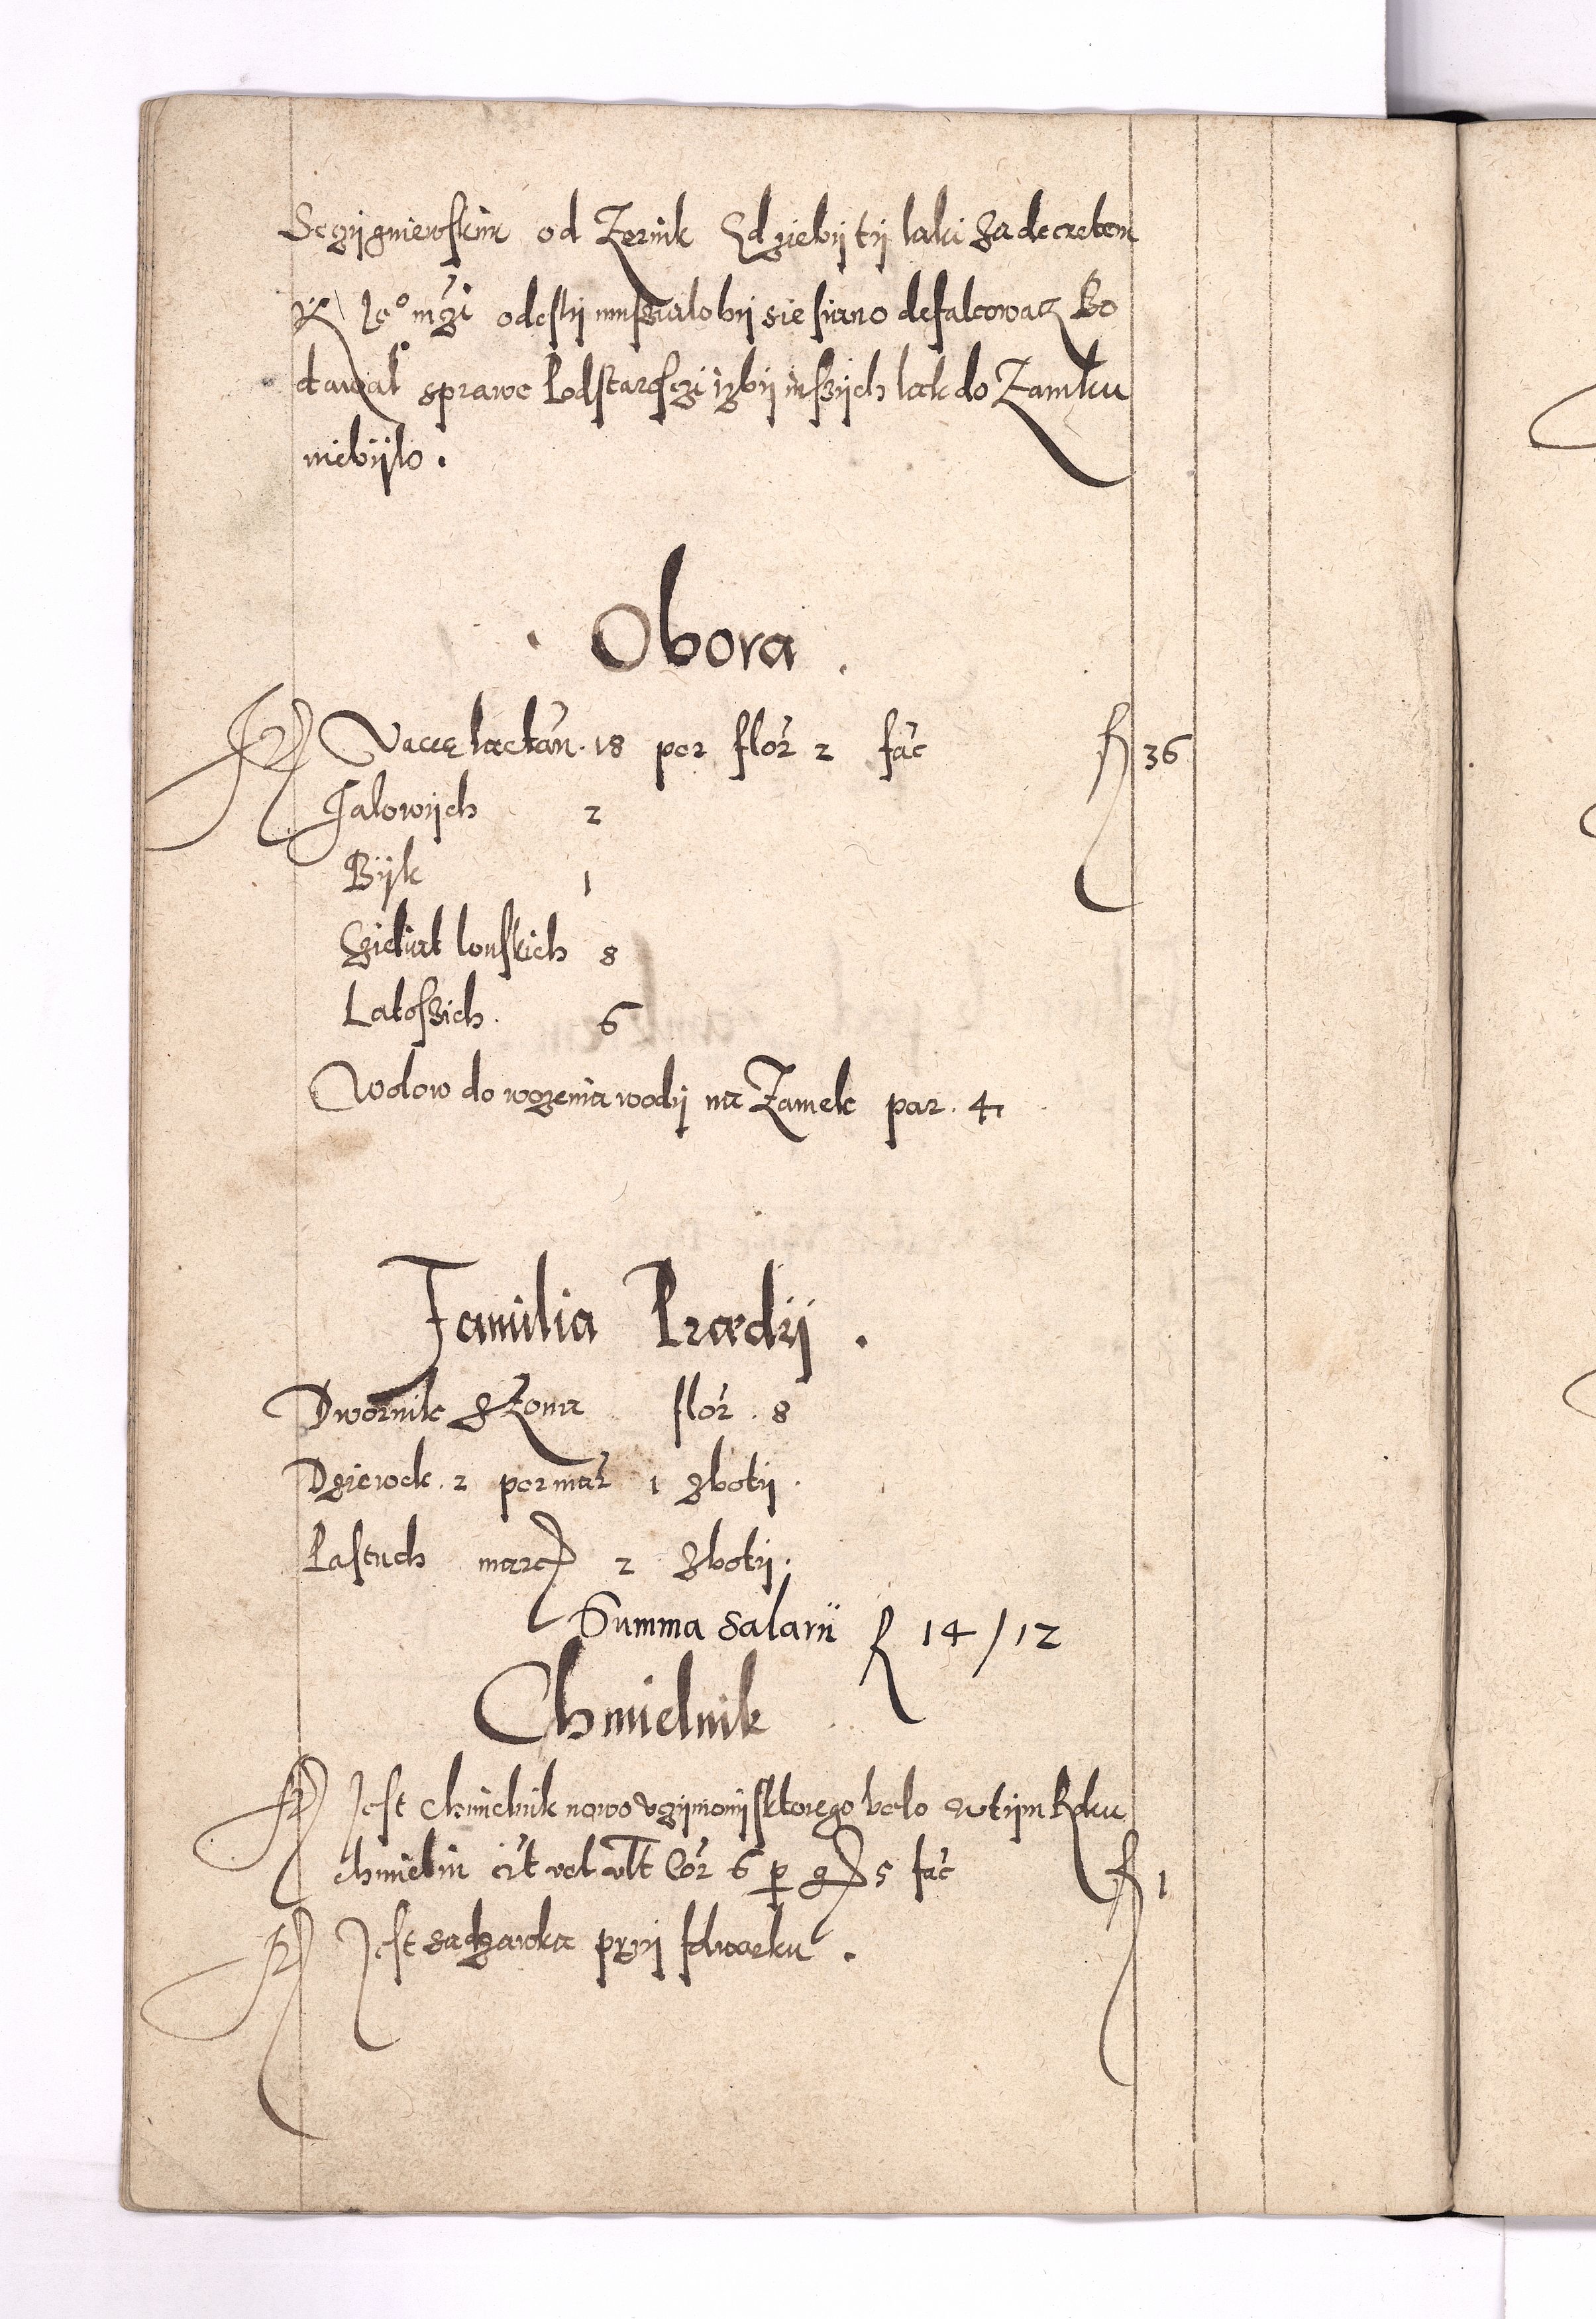 Sczÿgniewskim od Zernik Gdziebÿ tÿ laki za decretem
K Je° mczi odeslÿ mussialobÿ sie siano defalcowacz Bo
dawal sprawe Podstarosczi izbÿ inssÿch lak do Zamku
niebÿlo.
Obora.
Vaccę lactan. 18 per flor 2 fac fl 36
Jalowÿch 2
Bÿk 1
Czielat lonskich 8
Latoszich. 6
Wolow do wozenia wodÿ na Zamek par. 4
Familia Prædÿ.
Dwornik z Zona flor. 8
Dziewek. 2 per mar 1 zbotÿ.
Pastuch marc 2 zbotÿ.
Summa salarii fl 14/12
Chmielnik
Jest chmielnik nowo vczÿnionÿ sktorego belo wtÿm Roku
chmielu cit vel vlt Cor 6 p g 5 fac fl 1
Jest sadzawka przÿ folwarku.